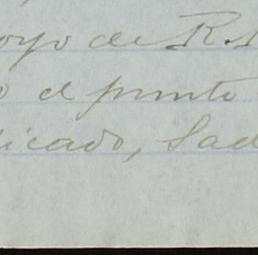 oyo de R.
o el punto
icado, Sad